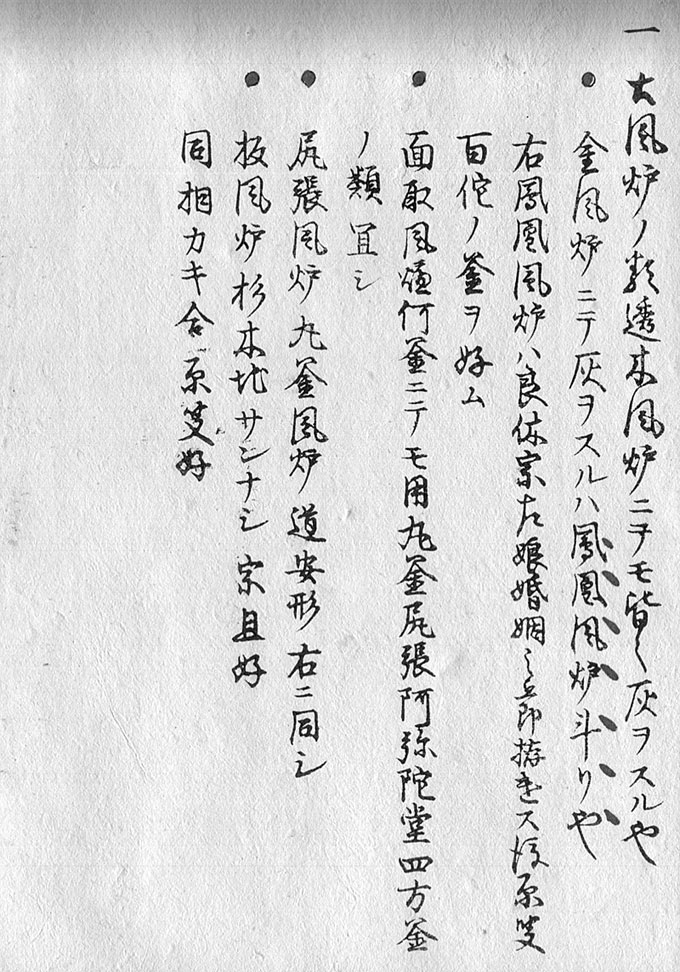 一 大風炉ノ類透木風炉ニヲモ皆々灰ヲスルや
● 金風炉ニテ灰ヲスルハ鳳凰風炉斗リや
右鳳凰風炉ハ良休宗左娘婚姻之節拵ス原叟
百佗ノ釜ヲ好ム
● 面取風炉何釜ニテモ用丸釜尻張阿弥陀堂四方釜
ノ類宜シ
● 尻張風炉丸釜風炉道安形右ニ同シ
● 板風炉杉木地サンナシ 宗旦好
同桐カキ合原叟好